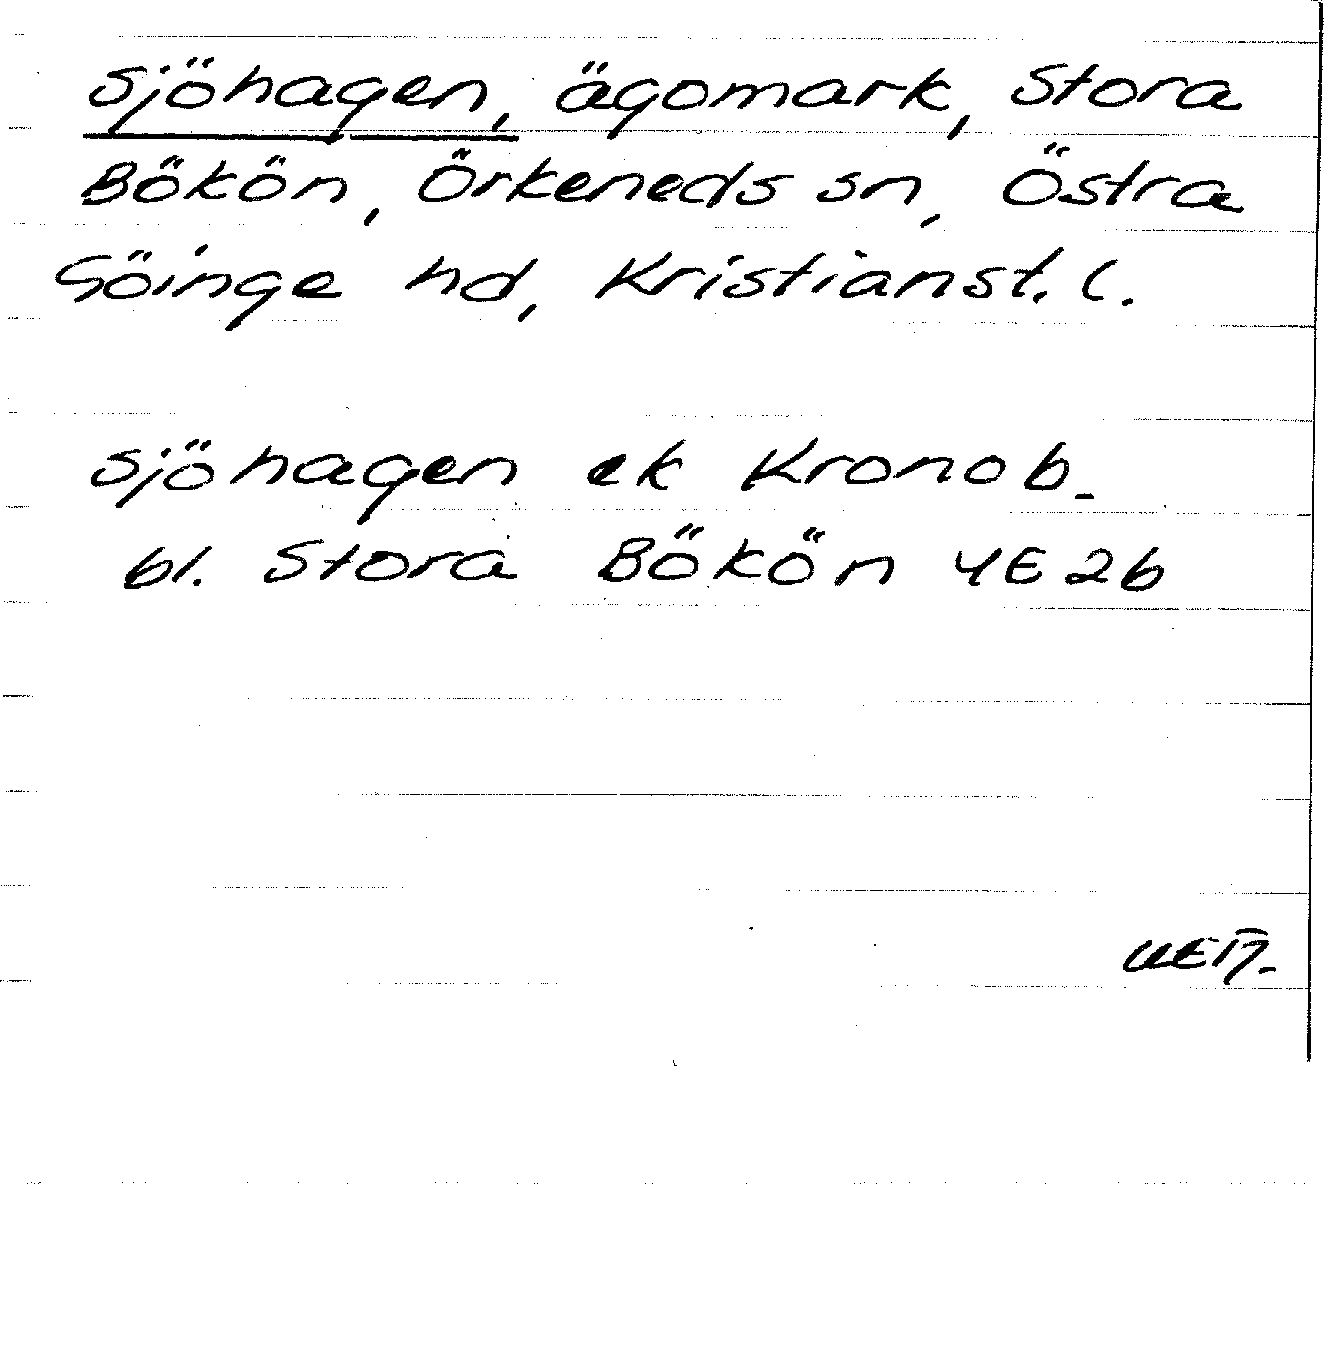 Sjöhagen, ägomark, Stora
Bökön, Örkeneds sn, Östra
Göinge hd, Kristianst. l.
Sjöhagen ek Kronob.
bl. Stora Bökön 4E2b